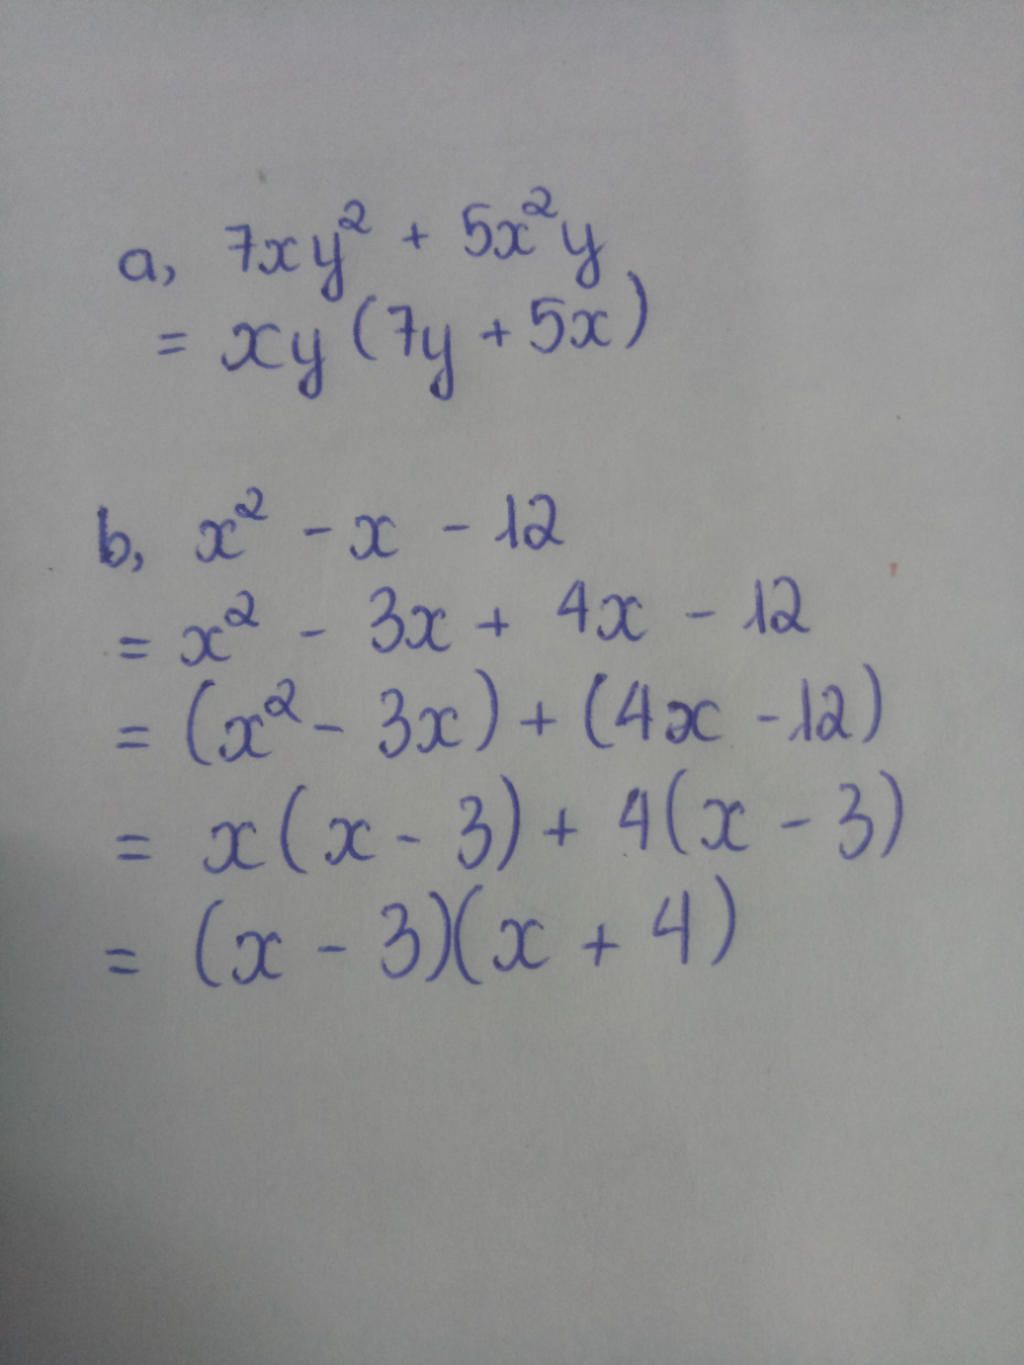 a, 7xy² + 5x²y
= xy(7y + 5x)
b, x² - x - 12
= x² - 3x + 4x - 12
= (x² - 3x) + (4x - 12)
= x(x - 3) + 4(x - 3)
= (x - 3)(x + 4)